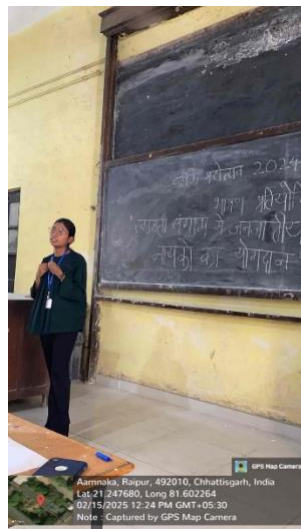 2024
भाषण
में जनजातीय
नायकों का योगदान
GPS Map Camera
Aamnaka, Raipur, 492010, Chhattisgarh, India
Lat 21.247680, Long 81.602264
02/15/2025 12:24 PM GMT+05:30
Note : Captured by GPS Map Camera